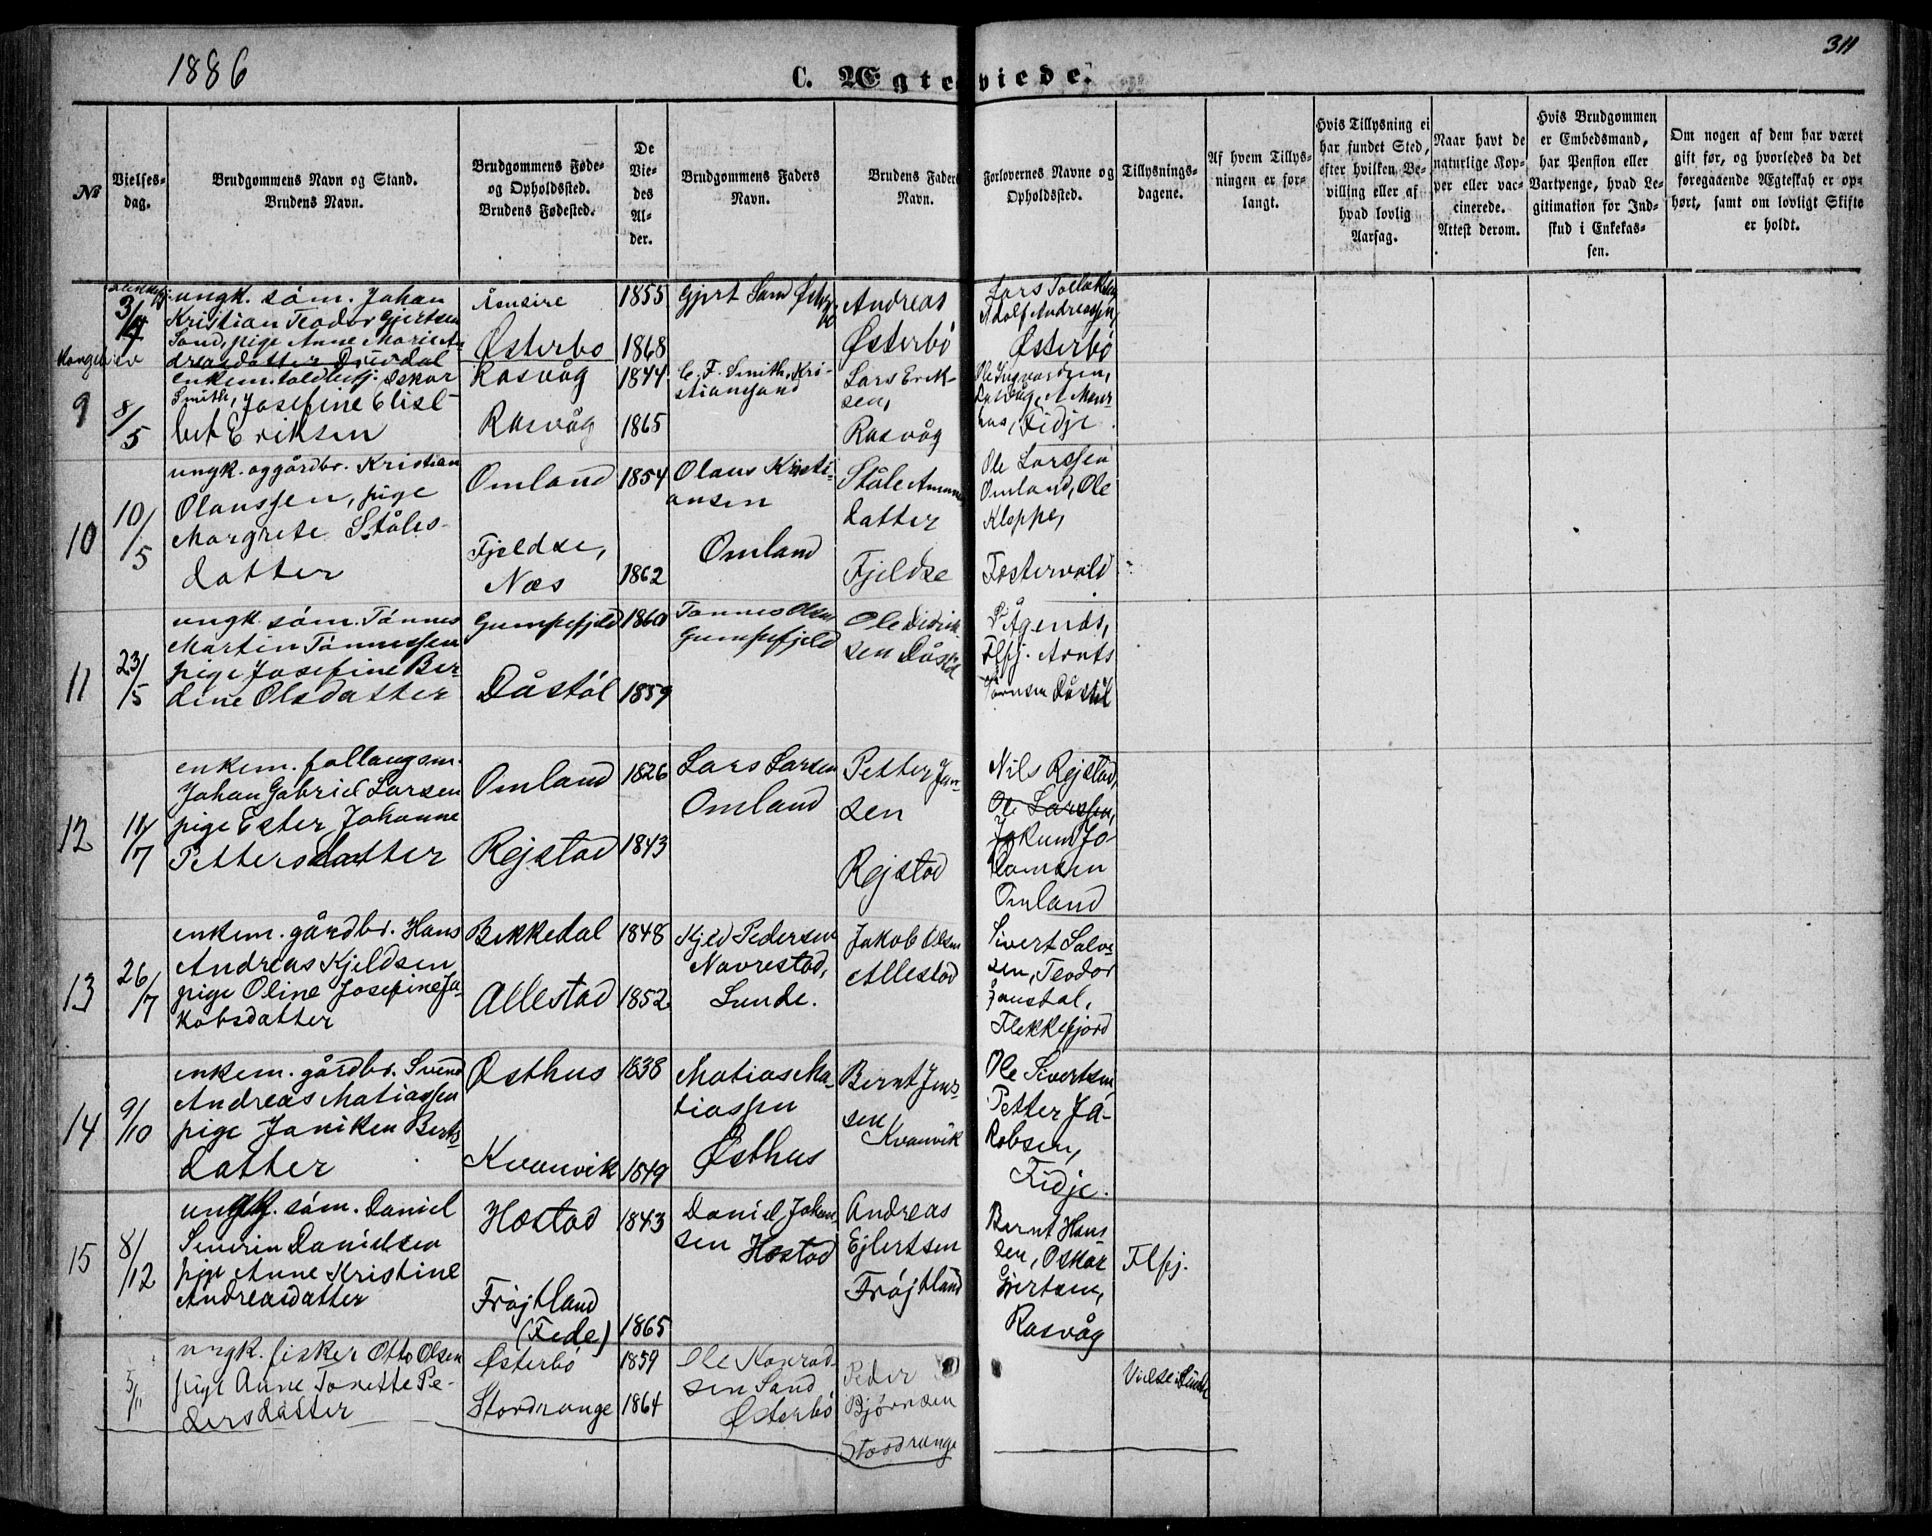 1886
311
C. Ægteviede.
№
Vielses-
dag.
Brudgommens Navn og Stand.
Brudens Navn.
Brudgommens Føde-
og Opholdssted.
Brudens Fødested.
De
Vie-
des
Al-
der.
Brudgommens Faders
Navn.
Brudens Faders
Navn.
Forlovernes Navne og
Opholdssted.
Tillysnings-
dagene.
Af hvem Tillys-
ningen er for-
langt.
Hvis Tillysning ei
har fundet Sted,
efter hvilken Be-
villing eller af
hvad lovlig
Aarsag.
Naar havt de
naturlige Kop-
per eller vac-
cinerede.
Attest derom.
Hvis Brudgommen
er Embedsmand,
har Pension eller
Vartpenge, hvad Le-
gitimation for Ind-
skud i Enkekas-
sen.
Om nogen af dem har været
gift før, og hvorledes da det
foregaaende Ægteskab er op-
hørt, samt om lovligt Skifte
er holdt.
3/4
ungk. søm. Johan
Kristian Teodor Gjertsen
Sand, pige Anne Marie An
dreasdatter
Åmsire
Østerbø
1855
1868
Gjert Sand Østerbø
Andreas
Østerbø
Lars
Adolf Andreassen,
Østerbø
9
8/5
enkem. toldbetj. Oskar
Smith, Josefine Elisa-
bet Eriksen
Rasvåg
Rasvåg
1844
1865
C. F. Smith, Kri-
stiansand
Lars Erik-
sen,
Rasvåg
Ole Ingvardsen,
Rasvåg, A.
Fidje
10
10/5
ungk. og gårdbr. Kristian
Olaussen, pige
Margrete Ståles-
datter
Omland
Fjeldse,
Næs
1854
1862
Olaus Kristi-
ansen
Omland
Ståle
datter
Fjeldse
Ole Larssen
Omland, Ole
Kloppe,
Festervold
11
23/5
ungk. søm. Tønnes
Martin Tønnessen
pige Josefine Ber-
dine Olsdatter
Gumpefjeld
Dåstøl
1860
1859
Tønnes Olsen
Gumpefjeld
Ole Didrik
sen Dåstøl
Ågenæs,
Flfj. Arnt
Dåstøl
12
11/7
enkem. fattaugsm.
Johan Gabriel Larsen
pige Ester Johanne
Pettersdatter
Omland
Rejstad
1826
1843
Lars Larsen
Omland
Petter Jan-
sen
Rejstad
Nils Rejstad,
Ole Larssen,
Jakum Jo-
Omland
13
26/7
enkem. gårdbr. Hans
Andreas Kjeldsen
pige Oline Josefine Ja-
kobsdatter
Bekkedal
Allestad
1848
1852
Kjeld Pedersen
Navrestad,
Lunde.
Jakob Olsen
Allestad
Sivert Salve
sen, Teodor
Flekkefjord
14
9/10
enkem. gårdbr. Svend
Andreas Matiassen
pige Janiken Bernts-
datter
Østhus
Kvanvik
1838
1849
Matias Ma-
tiassen
Østhus
Bernt Jens-
sen
Kvanvik
Ole Sivertsen
Petter Ja-
kobsen,
Fidje.
15
8/12
ungk. søm. Daniel
Severin Danielsen
pige Anne Kristine
Andreasdatter
Hæstad
Frøjtland
(Fede)
1843
1865
Daniel Johan
sen Hæstad
Andreas
Ejlertsen
Frøjtland
Bernt Hans-
sen, Oskar
Gjertsen,
Rasvåg
Flfj.
5/11
ungk. fisker Otto Olsen
pige Anne Tonette Pe-
dersdatter
Østerbø
Stordrange
1859
1864
Ole Konrad-
sen Sand
Østerbø
Peder
Bjørnsen
Stordrange